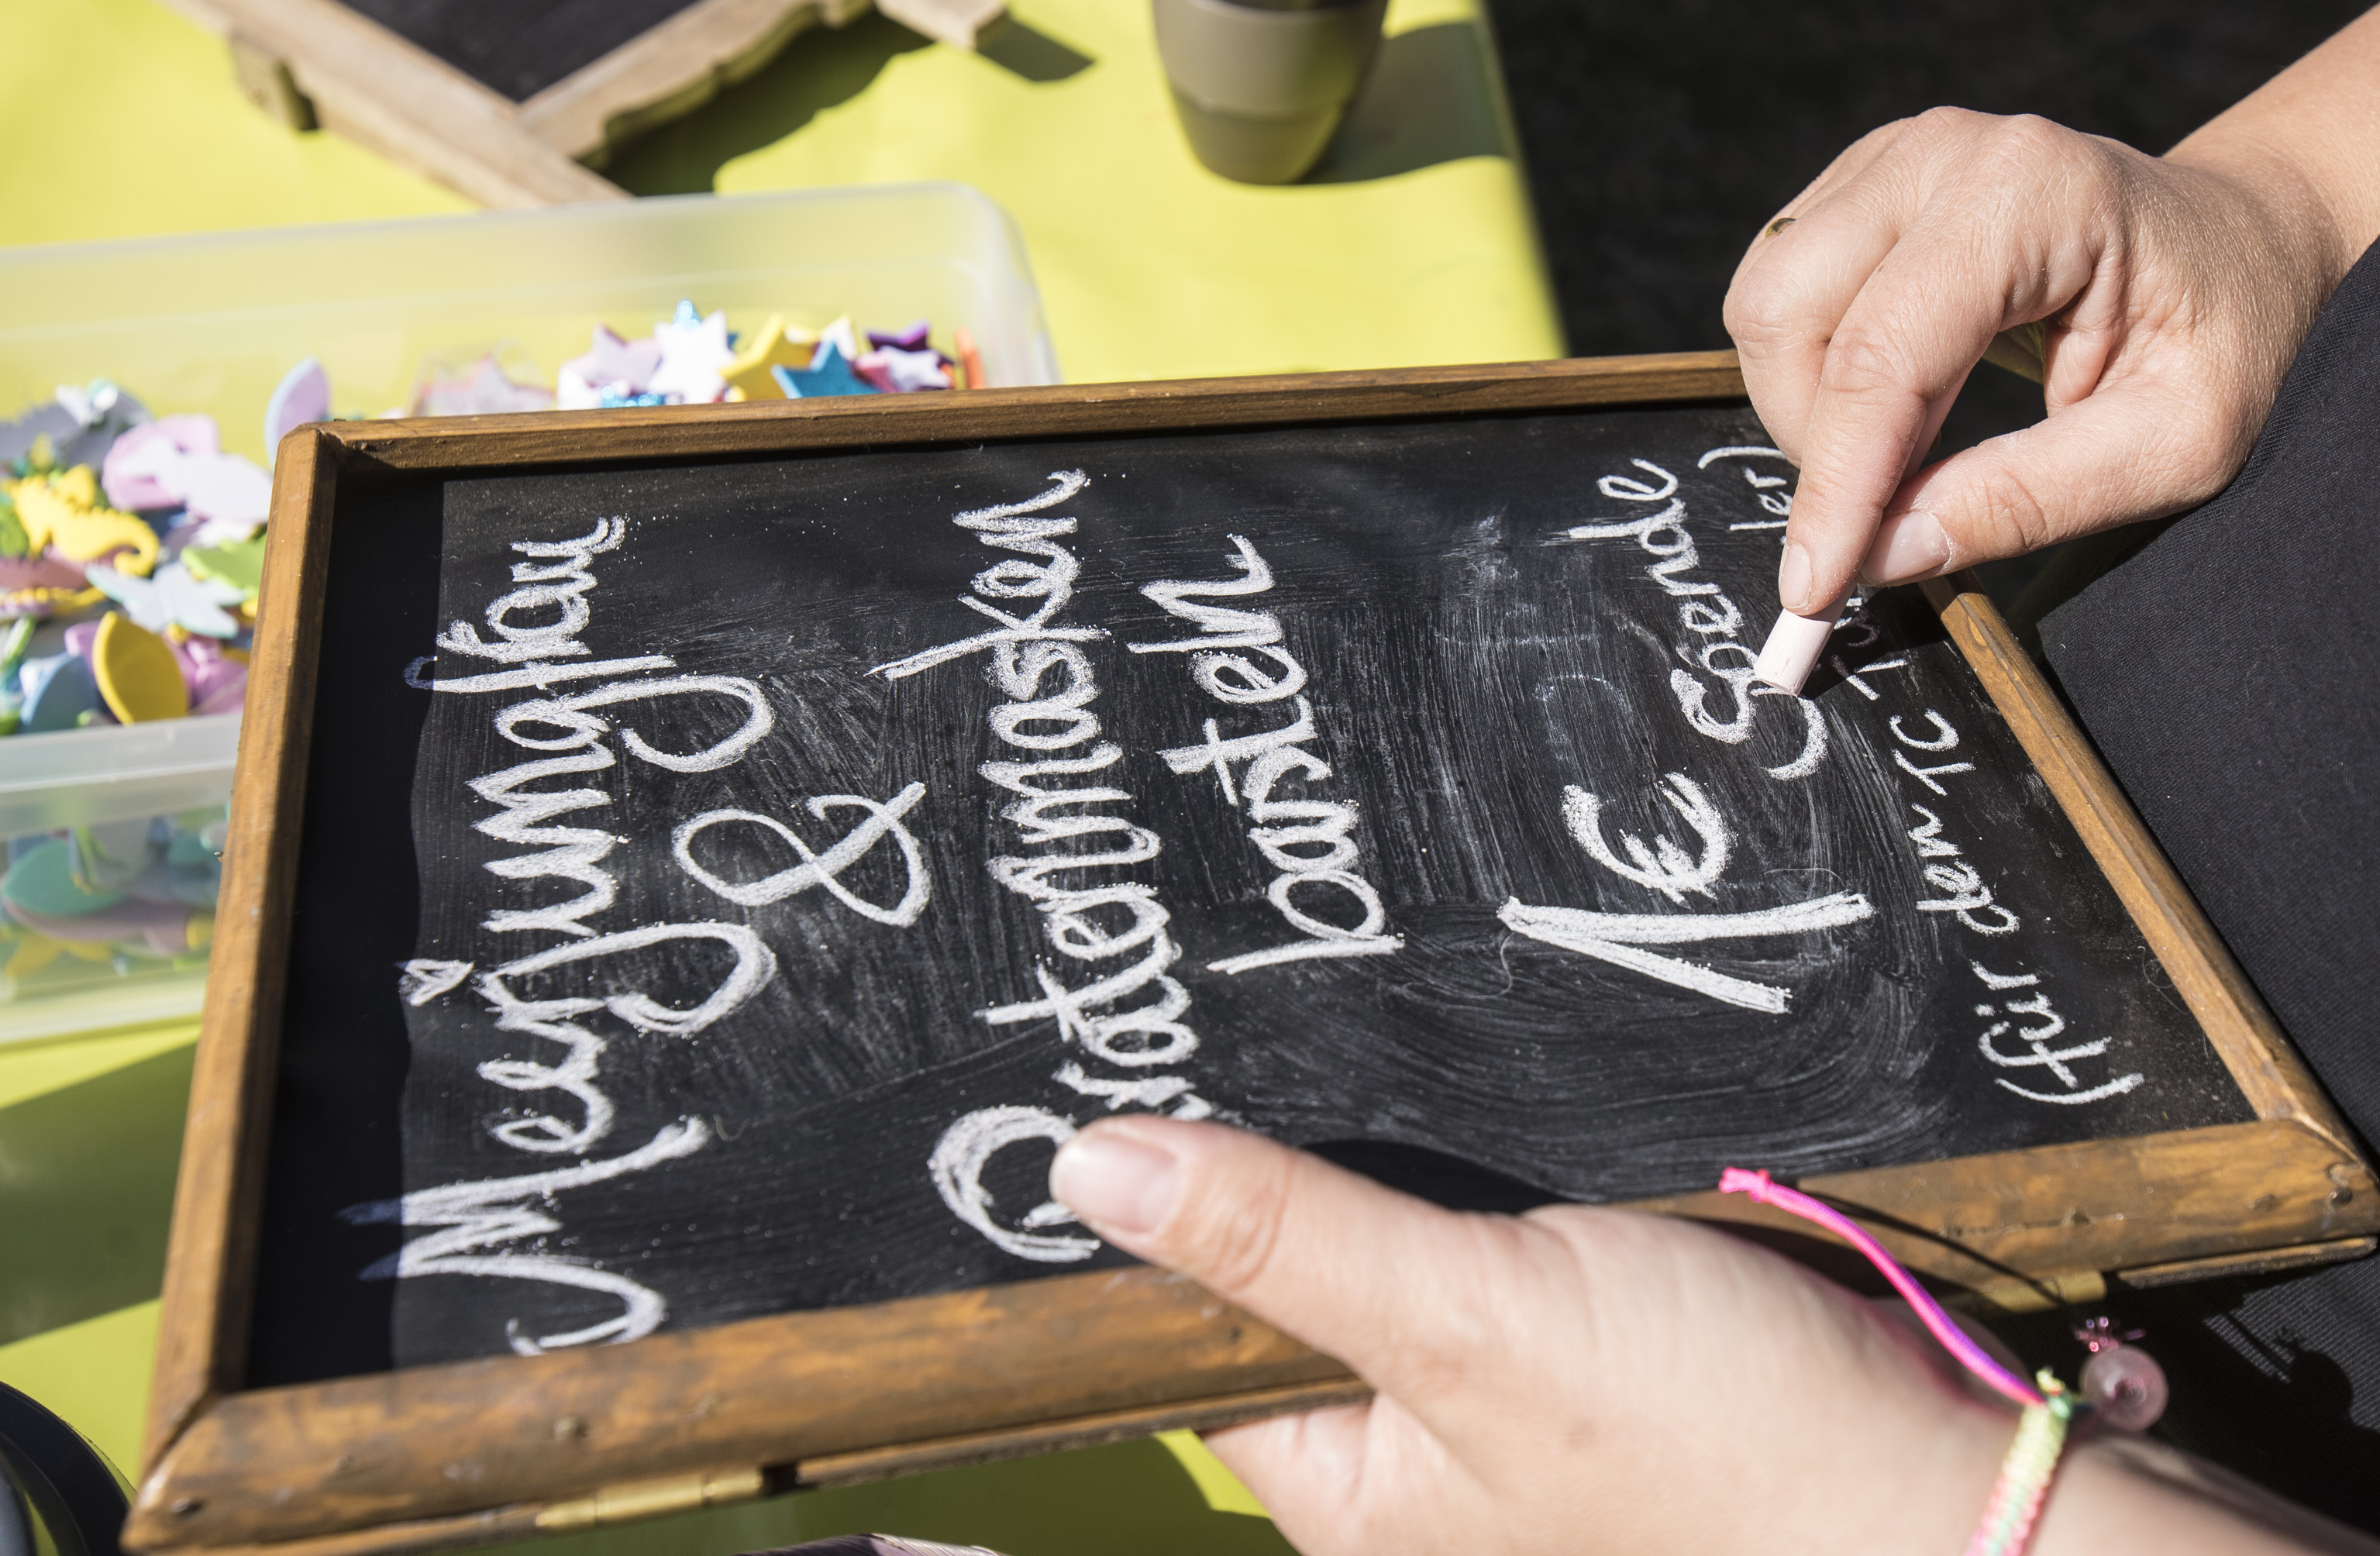 Meerjungfrau
&
Piratenmasken
basteln
1€ Spende
(für den TC